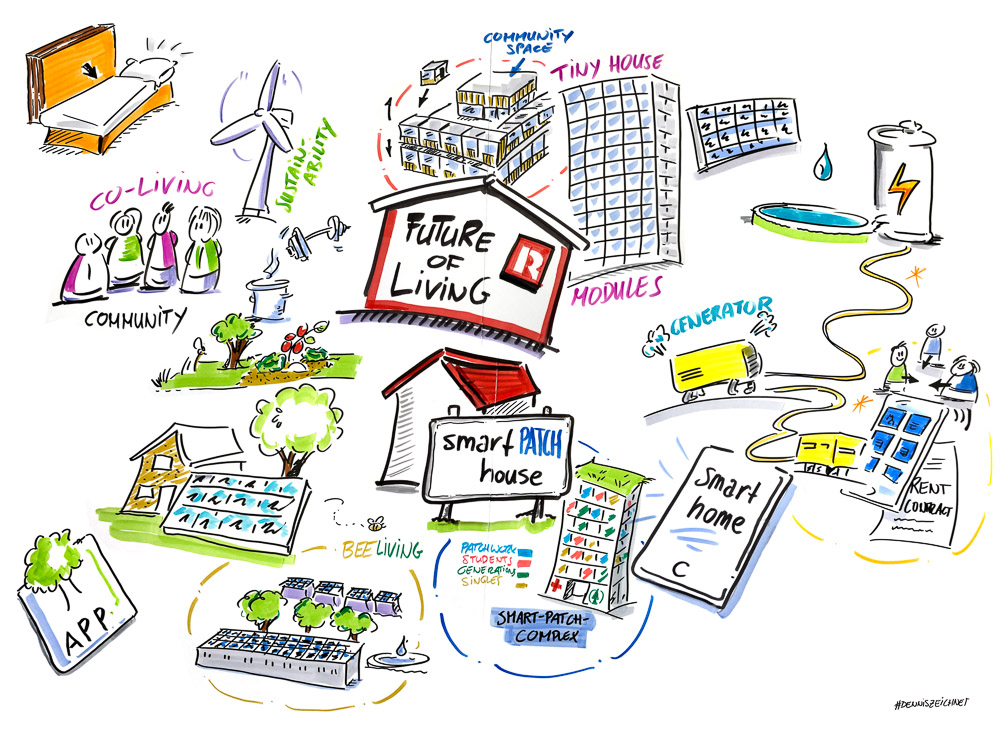 COMMUNITY
SPACE
TINY HOUSE
SUSTAIN-
ABILITY
CO-LIVING
COMMUNITY
FUTURE
OF
LIVING
R
MODULES
GENERATOR
smart PATCH
house
smart
home
C
RENT
CONTRACT
BEELIVING
PATCHWORK
STUDENTS
GENERATIONS
SINGLES
SMART-PATCH-
COMPLEX
APP.
#DENNISZEICHNET